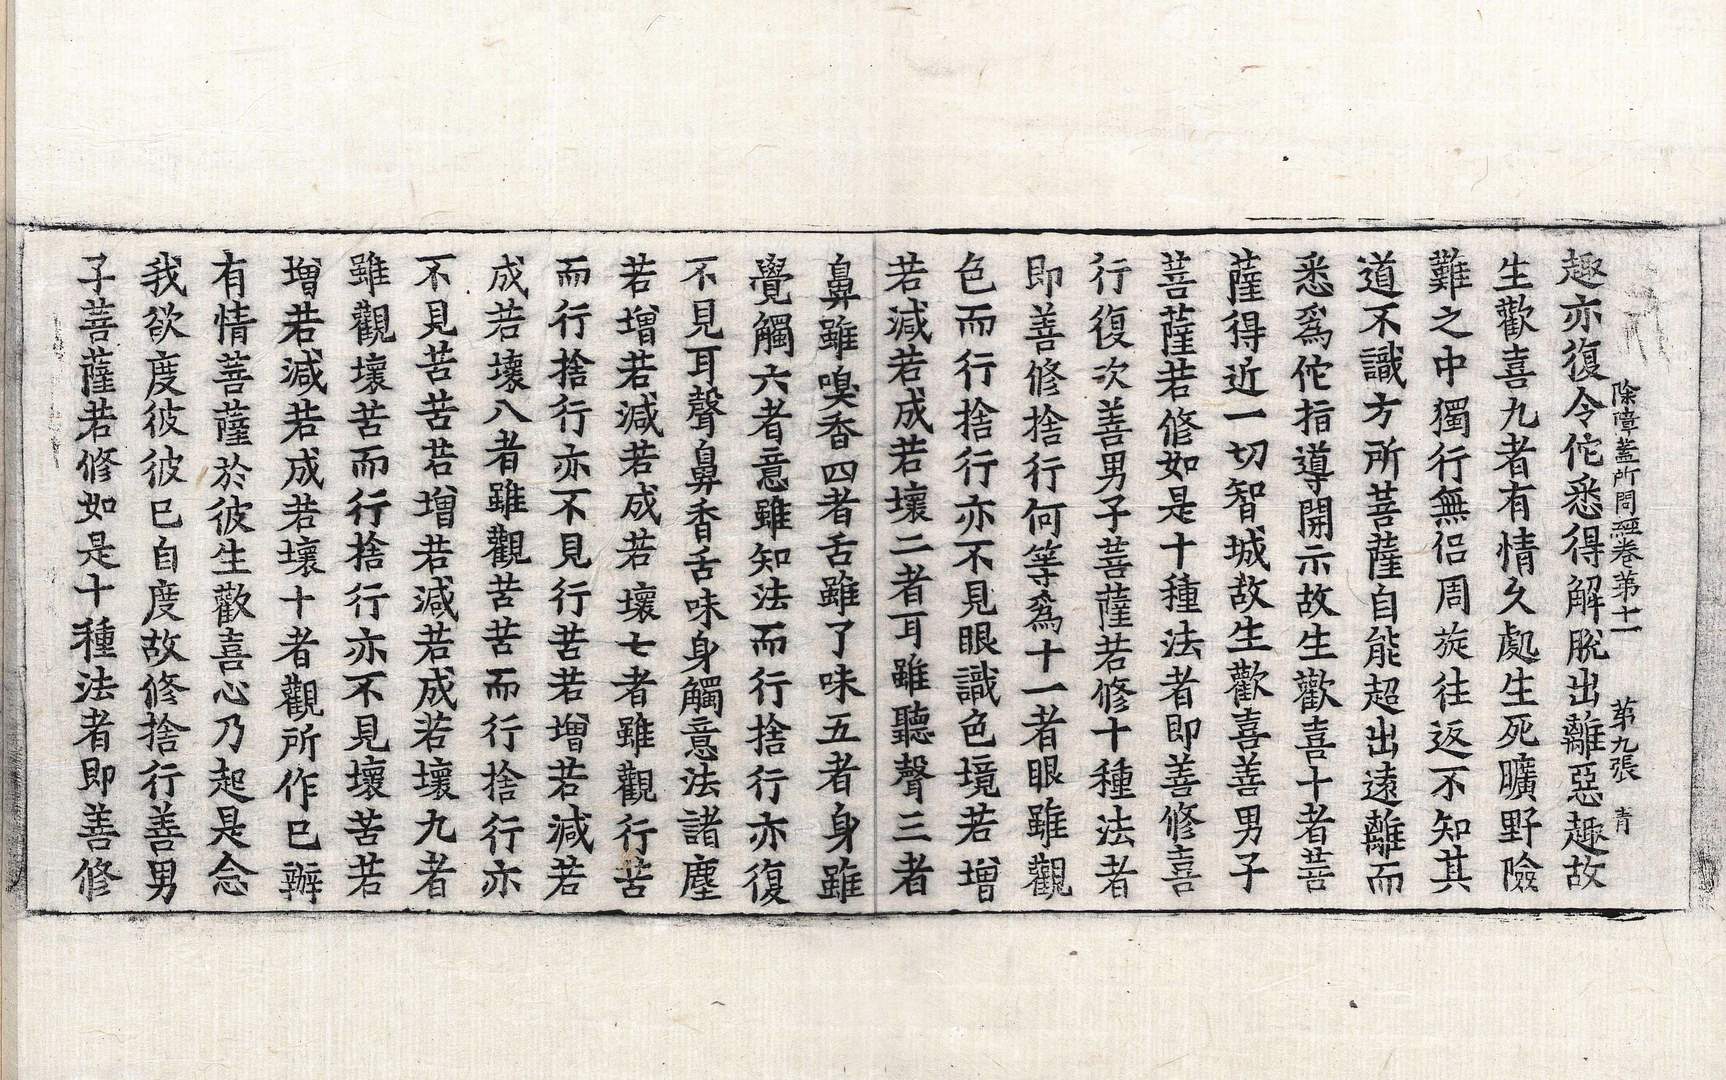 除障蓋所問經卷第十一 第九張 青
趣亦復令佗悉得解脫出離惡趣故
生歡喜九者有情久處生死曠野險
難之中獨行無侶周旋往返不知其
道不識方所菩薩自能超出遠離而
悉爲佗指導開示故生歡喜十者菩
薩得近一切智城故生歡喜善男子
菩薩若修如是十種法者即善修喜
行復次善男子菩薩若修十種法者
即善修捨行何等爲十一者眼雖觀
色而行捨行亦不見眼識色境若增
若減若成若壞二者耳雖聽聲三者
鼻雖嗅香四者舌雖了味五者身雖
覺觸六者意雖知法而行捨行亦復
不見耳聲鼻香舌味身觸意法諸塵
若增若減若成若壞七者雖觀行苦
而行捨行亦不見行苦若增若減若
成若壞八者雖觀苦苦而行捨行亦
不見苦苦若增若減若成若壞九者
雖觀壞苦而行捨行亦不見壞苦若
增若減若成若壞十者觀所作已辦
有情菩薩於彼生歡喜心乃起是念
我欲度彼彼已自度故修捨行善男
子菩薩若修如是十種法者即善修